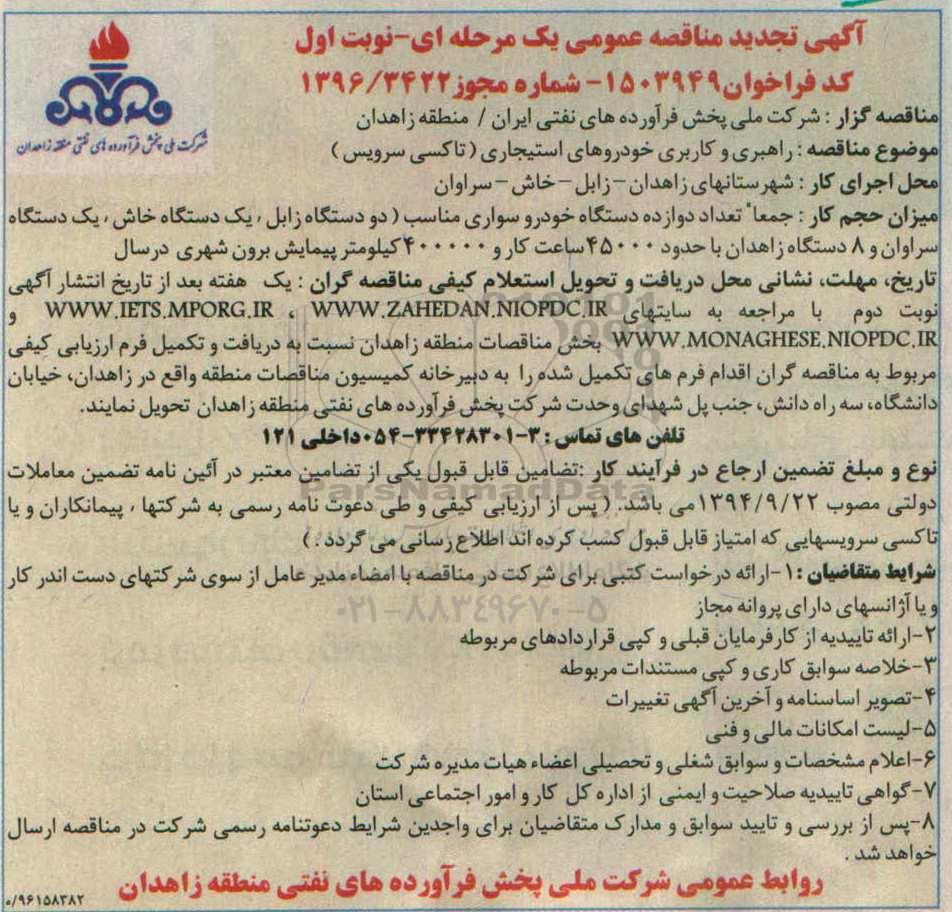 آگهی تجدید مناقصه عمومی یک مرحله ای-نوبت اول
کد فراخوان۱۵۰۳۹۴۹- شماره مجوز۱۳۹۶/۳۴۲۲
شرکت ملی پخش فرآورده های نفتی منطقه زاهدان
مناقصه گزار : شرکت ملی پخش فرآورده های نفتی ایران / منطقه زاهدان
موضوع مناقصه : راهبری و کاربری خودروهای استیجاری ( تاکسی سرویس )
محل اجرای کار : شهرستانهای زاهدان-زابل-خاش-سراوان
میزان حجم کار : جمعاً تعداد دوازده دستگاه خودرو سواری مناسب ( دو دستگاه زابل ، یک دستگاه خاش ، یک دستگاه
سراوان و ۸ دستگاه زاهدان با حدود ۴۵۰۰۰ ساعت کار و ۴۰۰۰۰۰ کیلومتر پیمایش برون شهری درسال
تاریخ، مهلت، نشانی محل دریافت و تحویل استعلام کیفی مناقصه گران : یک هفته بعد از تاریخ انتشار آگهی
نوبت دوم با مراجعه به سایتهای WWW.ZAHEDAN.NIOPDC.IR ، WWW.IETS.MPORG.IR و
WWW.MONAGHESE.NIOPDC.IR بخش مناقصات منطقه زاهدان نسبت به دریافت و تکمیل فرم ارزیابی کیفی
مربوط به مناقصه گران اقدام فرم های تکمیل شده را به دبیرخانه کمیسیون مناقصات منطقه واقع در زاهدان، خیابان
دانشگاه، سه راه دانش، جنب پل شهدای وحدت شرکت پخش فرآورده های نفتی منطقه زاهدان تحویل نمایند.
تلفن های تماس : ۳-۳۳۴۲۸۳۰۱-۰۵۴داخلی ۱۲۱
نوع و مبلغ تضمین ارجاع در فرآیند کار :تضامین قابل قبول یکی از تضامین معتبر در آئین نامه تضمین معاملات
دولتی مصوب ۱۳۹۴/۹/۲۲می باشد. ( پس از ارزیابی کیفی و طی دعوت نامه رسمی به شرکتها ، پیمانکاران و یا
تاکسی سرویسهایی که امتیاز قابل قبول کسب کرده اند اطلاع رسانی می گردد . )
شرایط متقاضیان :۱-ارائه درخواست کتبی برای شرکت در مناقصه با امضاء مدیر عامل از سوی شرکتهای دست اندر کار
و یا آژانسهای دارای پروانه مجاز
۲-ارائه تاییدیه از کارفرمایان قبلی و کپی قراردادهای مربوطه
۳-خلاصه سوابق کاری و کپی مستندات مربوطه
۴-تصویر اساسنامه و آخرین آگهی تغییرات
۵-لیست امکانات مالی و فنی
۶-اعلام مشخصات و سوابق شغلی و تحصیلی اعضاء هیات مدیره شرکت
۷-گواهی تاییدیه صلاحیت و ایمنی از اداره کل کار و امور اجتماعی استان
۸-پس از بررسی و تایید سوابق و مدارک متقاضیان برای واجدین شرایط دعوتنامه رسمی شرکت در مناقصه ارسال
خواهد شد .
روابط عمومی شرکت ملی پخش فرآورده های نفتی منطقه زاهدان
۰/۹۶۱۵۸۳۸۲
ParsNamadData
۰۲۱-۸۸۳۴۹۶۷۰-۵